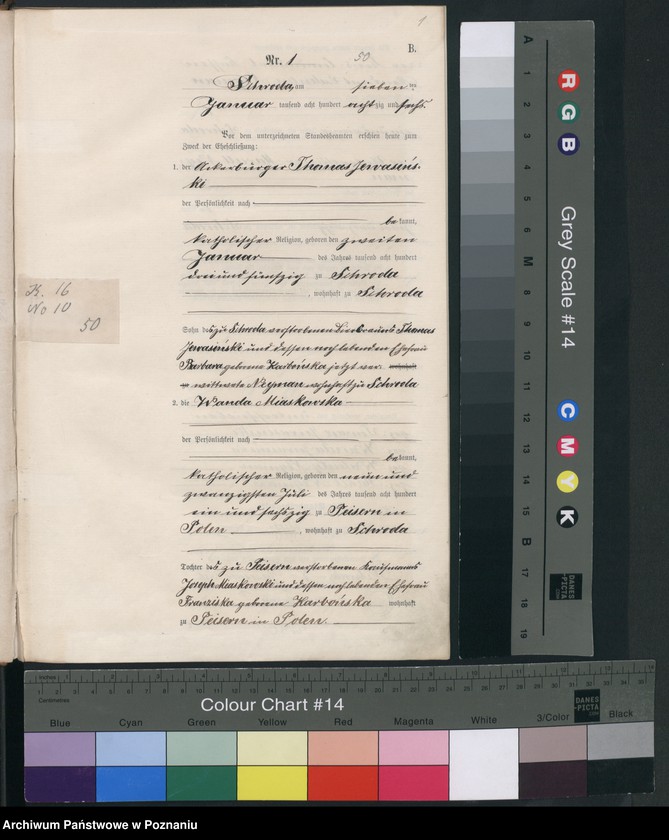 1
B.
Nr. 1
50
Schroda, am sieben ten
Januar tausend acht hundert achtzig und sechs.
Vor dem unterzeichneten Standesbeamten erschien heute zum
Zweck der Eheschließung:
1. der Ackerbürger Thomas Jerasińs-
ki
der Persönlichkeit nach
bekannt,
katholischer Religion, geboren den zweiten
Januar des Jahres tausend acht hundert
drei und fünfzig zu Schroda
, wohnhaft zu Schroda
Sohn des zu Schroda verstorbenen Thomas
Jerasiński und dessen noch lebenden Ehefrau
Barbara geborene Karbońska jetzt ver
wittwete Neyman wohnhaft zu Schroda
2. die Wanda Miaskowska
der Persönlichkeit nach
bekannt,
katholischer Religion, geboren den neun und
zwanzigsten Juli des Jahres tausend acht hundert
ein und sechszig zu Peisern in
Polen, wohnhaft zu Schroda
Tochter des zu Peisern verstorbenen Kaufmanns
Joseph Miaskowski und dessen noch lebenden Ehefrau
Franziska geborene Karbońska wohnhaft
zu Peisern in Polen.
K. 16
No 10
50
A 1 2 3 4 5 6 M 8 9 10 11 12 13 14 15 B 17 18 19
R G B
Grey Scale #14
C M Y K
DANES-PICTA
Inches
Centimetres
Colour Chart #14
DANES-PICTA
Blue Cyan Green Yellow Red Magenta White 3/Color Black
Archiwum Państwowe w Poznaniu